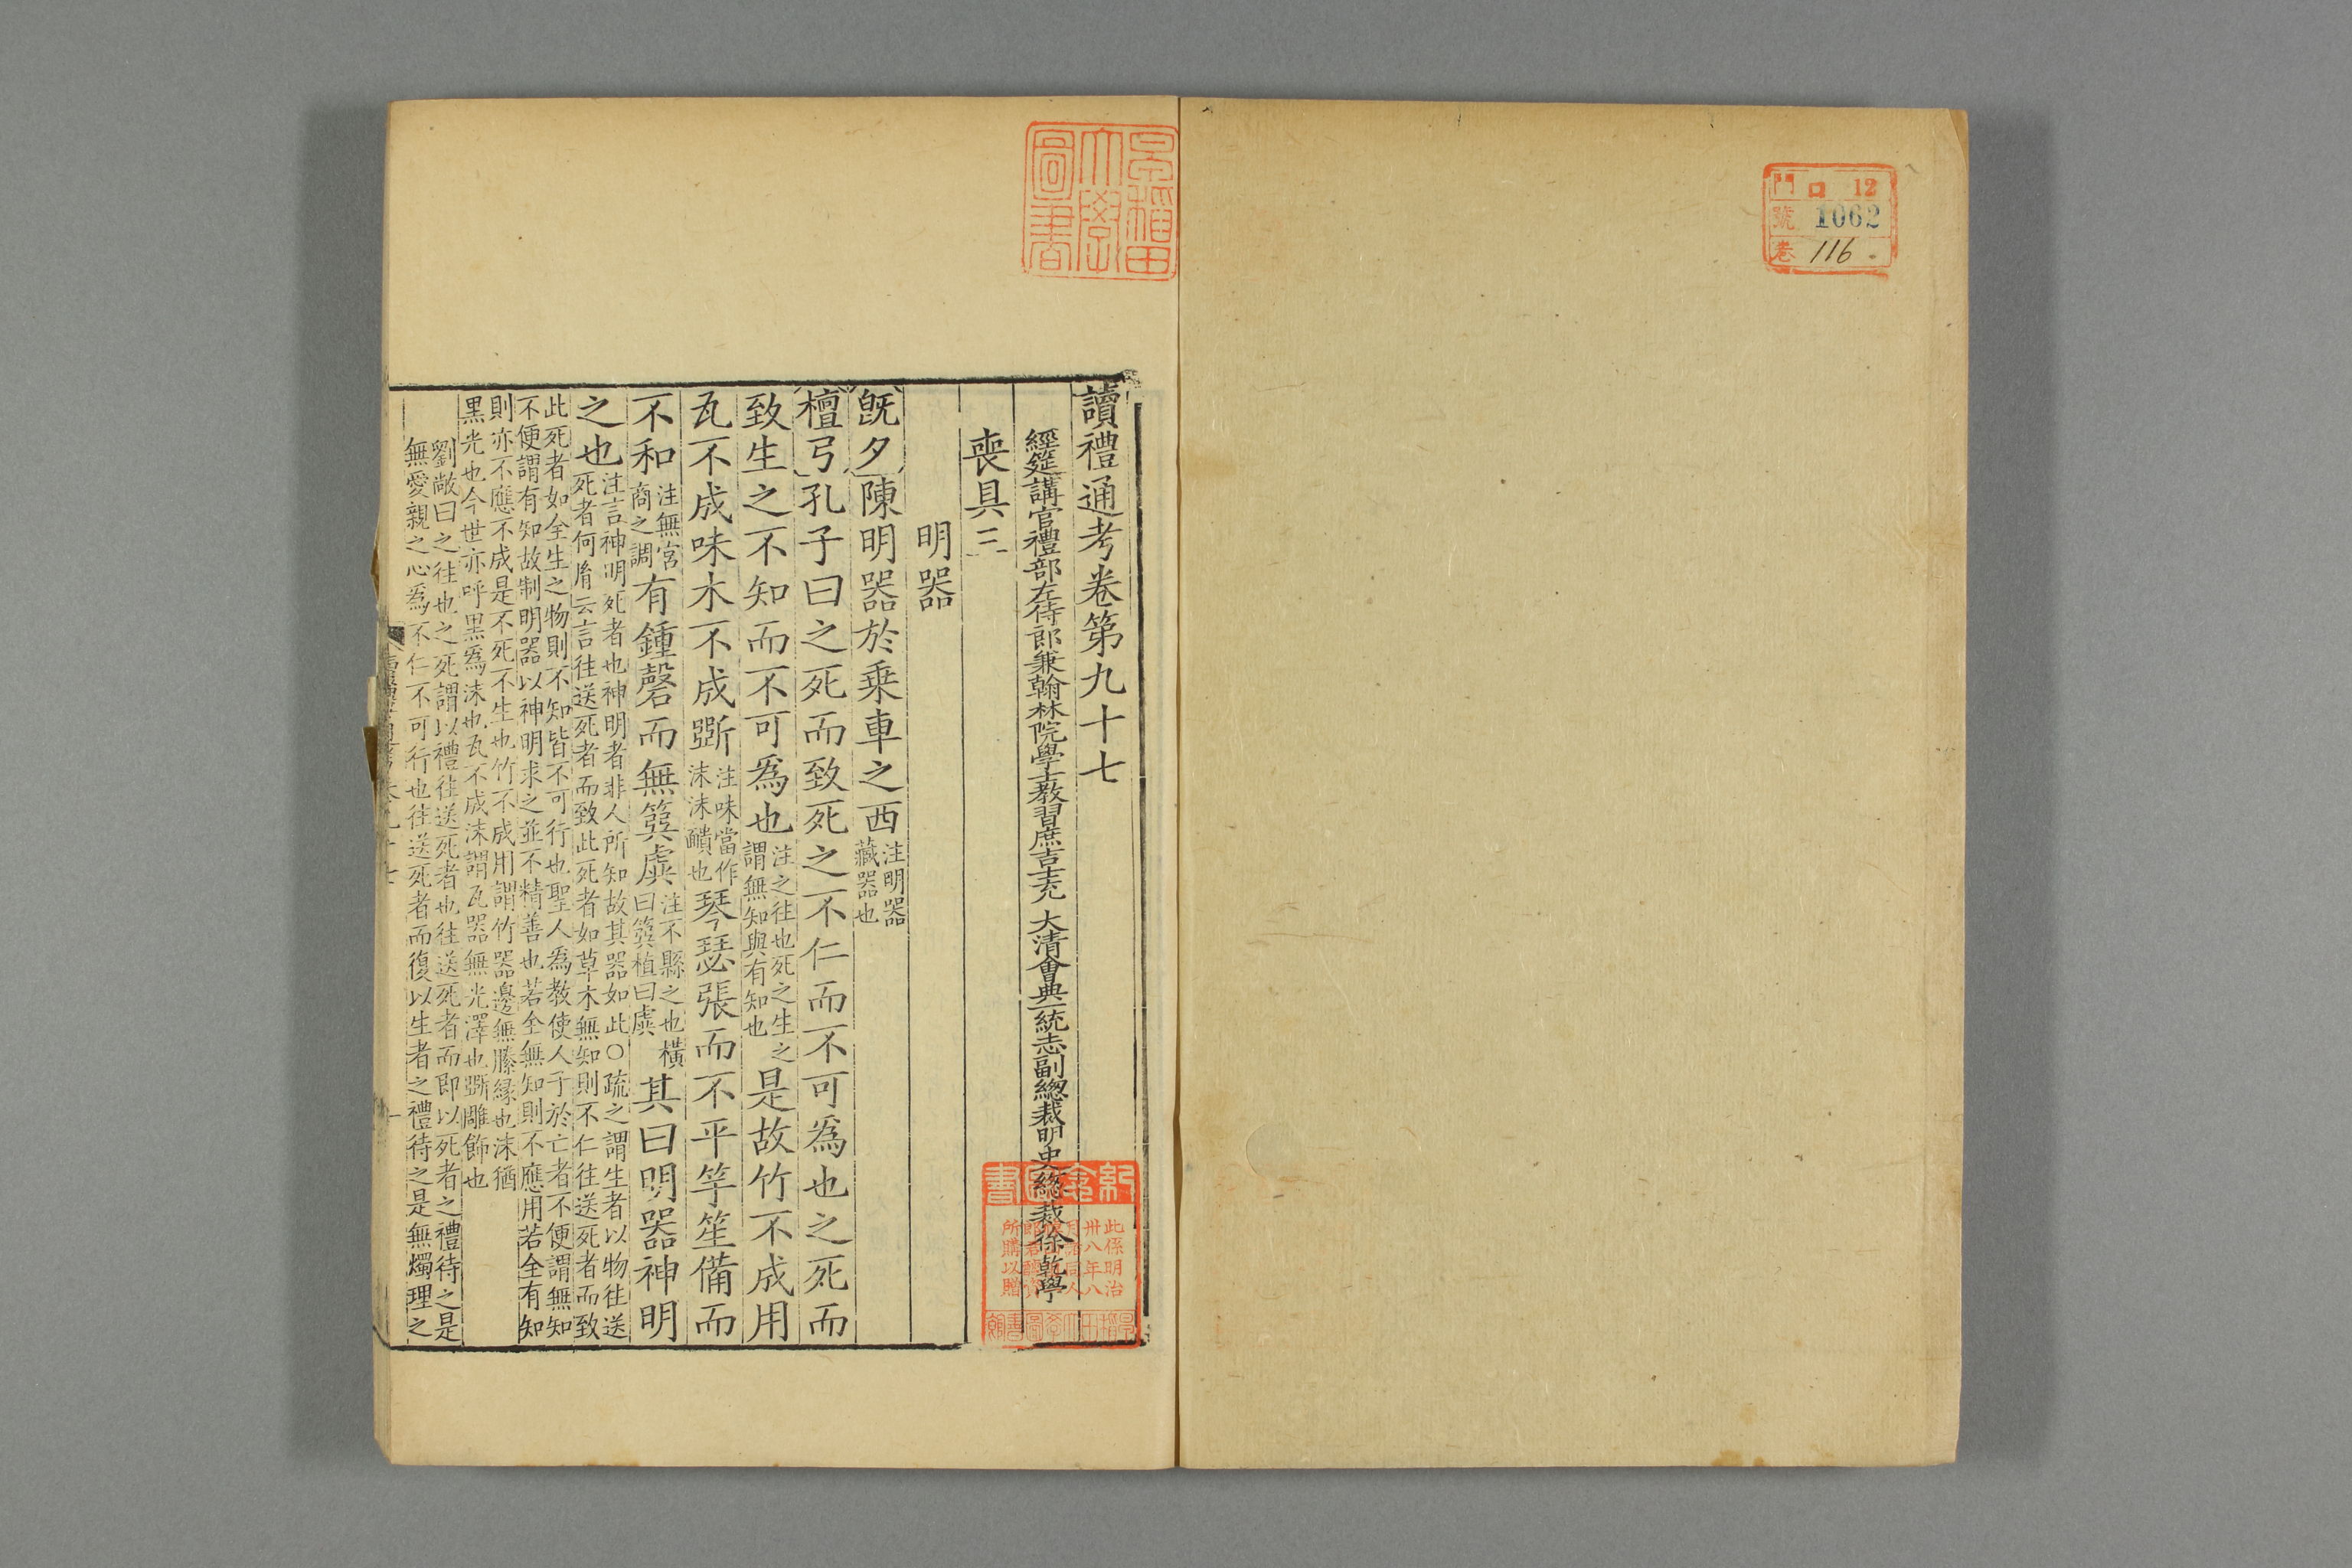 門 口 12
號 1062
卷 116
早稻田大學圖書
讀禮通考卷第九十七
經筵講官禮部左侍郎兼翰林院學士教習庶吉士充 大清會典一統志副總裁明史總裁徐乾學
喪具三
明器
旣夕陳明器於乗車之西注明器藏器也
檀弓孔子曰之死而致死之不仁而不可爲也之死而
致生之不知而不可爲也注之往也死之生之謂無知與有知也是故竹不成用
瓦不成味木不成斲注味當作沬沬靧也琴瑟張而不平竽笙備而
不和注無宮商之調有鍾磬而無簨虡注不縣之也橫曰簨植曰虡其曰明器神明
之也注言神明死者也神明者非人所知故其器如此○疏之謂生者以物往送
死者何胤云言往送死者而致此死者如草木無知則不仁往送死者而致
此死者如全生之物則不知皆不可行也聖人爲教使人子於亡者不便謂無知
不便謂有知故制明器以神明求之並不精善也若全無知則不應用若全有知
則亦不應不成是不死不生也竹不成用謂竹器邊無縢緣也沬猶
黒光也今世亦呼黒爲沬也瓦不成沬謂瓦器無光澤也斲雕飾也
劉敞曰之往也之死謂以禮往送死者也往送死者而即以死者之禮待之是
無愛親之心爲不仁不可行也往送死者而復以生者之禮待之是無燭理之
此係明治卅八年八
所購以贈